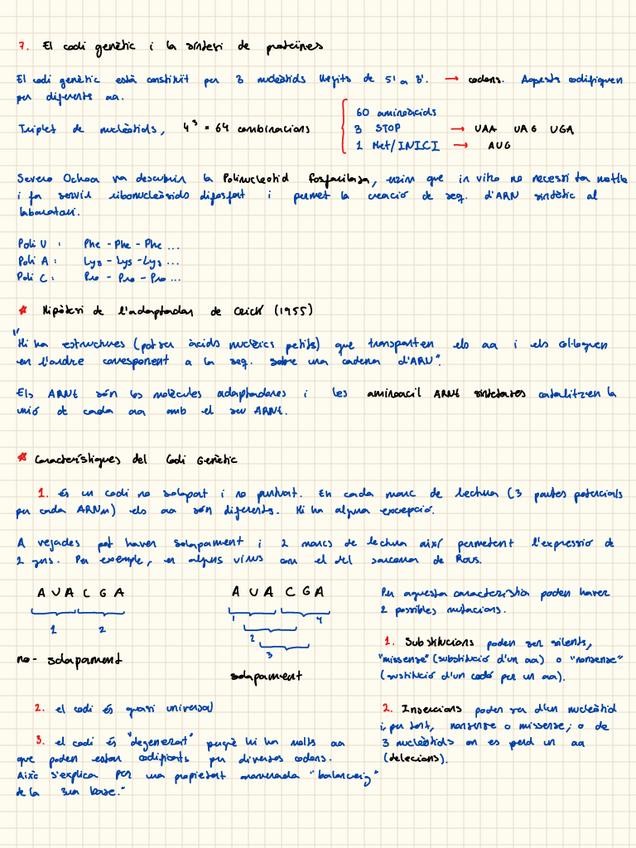 7. El codi genètic i la síntesi de proteïnes
El codi genètic està constituït per 3 nucleòtids llegits de 5' a 3'. → codons. Aquests codifiquen
per diferents aa.
Triplet de nucleòtids, 4³ = 64 combinacions
60 aminoàcids
3 STOP → UAA UAG UGA
1 Met/INICI → AUG
Severo Ochoa va descobrir la Polinucleòtid fosforilasa, enzim que in vitro no necessita motlle
i fa servir ribonucleòsids difosfat i permet la creació de seq. d'ARN sintètic al
laboratori.
Poli U : Phe - Phe - Phe ...
Poli A : Lys - Lys - Lys ...
Poli C : Pro - Pro - Pro ...
* Hipòtesi de l'adaptador de Crick (1955)
"Hi ha estructures (potser àcids nucleics petits) que transporten els aa i els col·loquen
en l'ordre corresponent a la seq. sobre una cadena d'ARN".
Els ARNt són les molècules adaptadores i les aminoacil ARNt sintetases catalitzen la
unió de cada aa amb el seu ARNt.
* Característiques del Codi Genètic
1. És un codi no solapat i no puntuat. En cada marc de lectura (3 pautes potencials
per cada ARNm) els aa són diferents. Hi ha alguna excepció.
A vegades pot haver solapament i 2 marcs de lectura així permetent l'expressió de
2 gens. Per exemple, en alguns virus com el del sarcoma de Rous.
A U A C G A
1 2
no - solapament
A U A C G A
1 4
2
3
solapament
2. el codi és quasi universal
3. el codi és "degenerat" perquè hi ha molts aa
que poden estar codificats per diversos codons.
Això s'explica per una propietat anomenada "balanceig
de la 3era base."
Per aquesta característica poden haver
2 possibles mutacions.
1. Substitucions poden ser silents,
"missense" (substitució d'un aa) o "nonsense"
(sustitució d'un codó per un aa).
2. Insercions poden ser d'un nucleòtid
i, per tant, nonsense o missense; o de
3 nucleòtids on es perd un aa
(delecions).